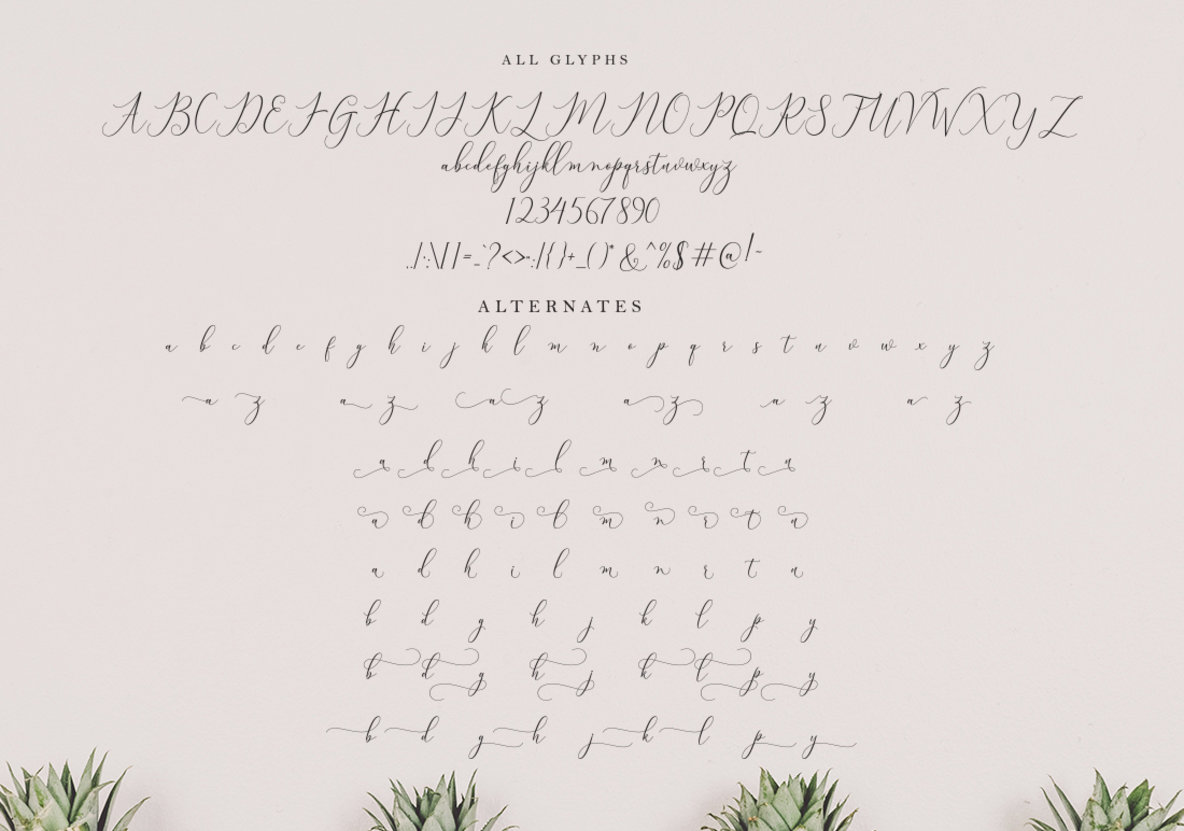 ALL GLYPHS
ABCDEFGHIJKLMNOPQRSTUVWXYZ
abcdefghijklmnopqrstuvwxyz
1234567890
../:;\[]=-`?<>"':/{}+_()*&^%$#@!~
ALTERNATES
a b c d e f g h i j k l m n o p q r s t u v w x y z
a z a z a z a z a z a z
a d h i l m n r t u
a d h i l m n r t u
a d h i l m n r t u
b d g h j k l p y
b d g h j k l p y
b d g h j k l p y